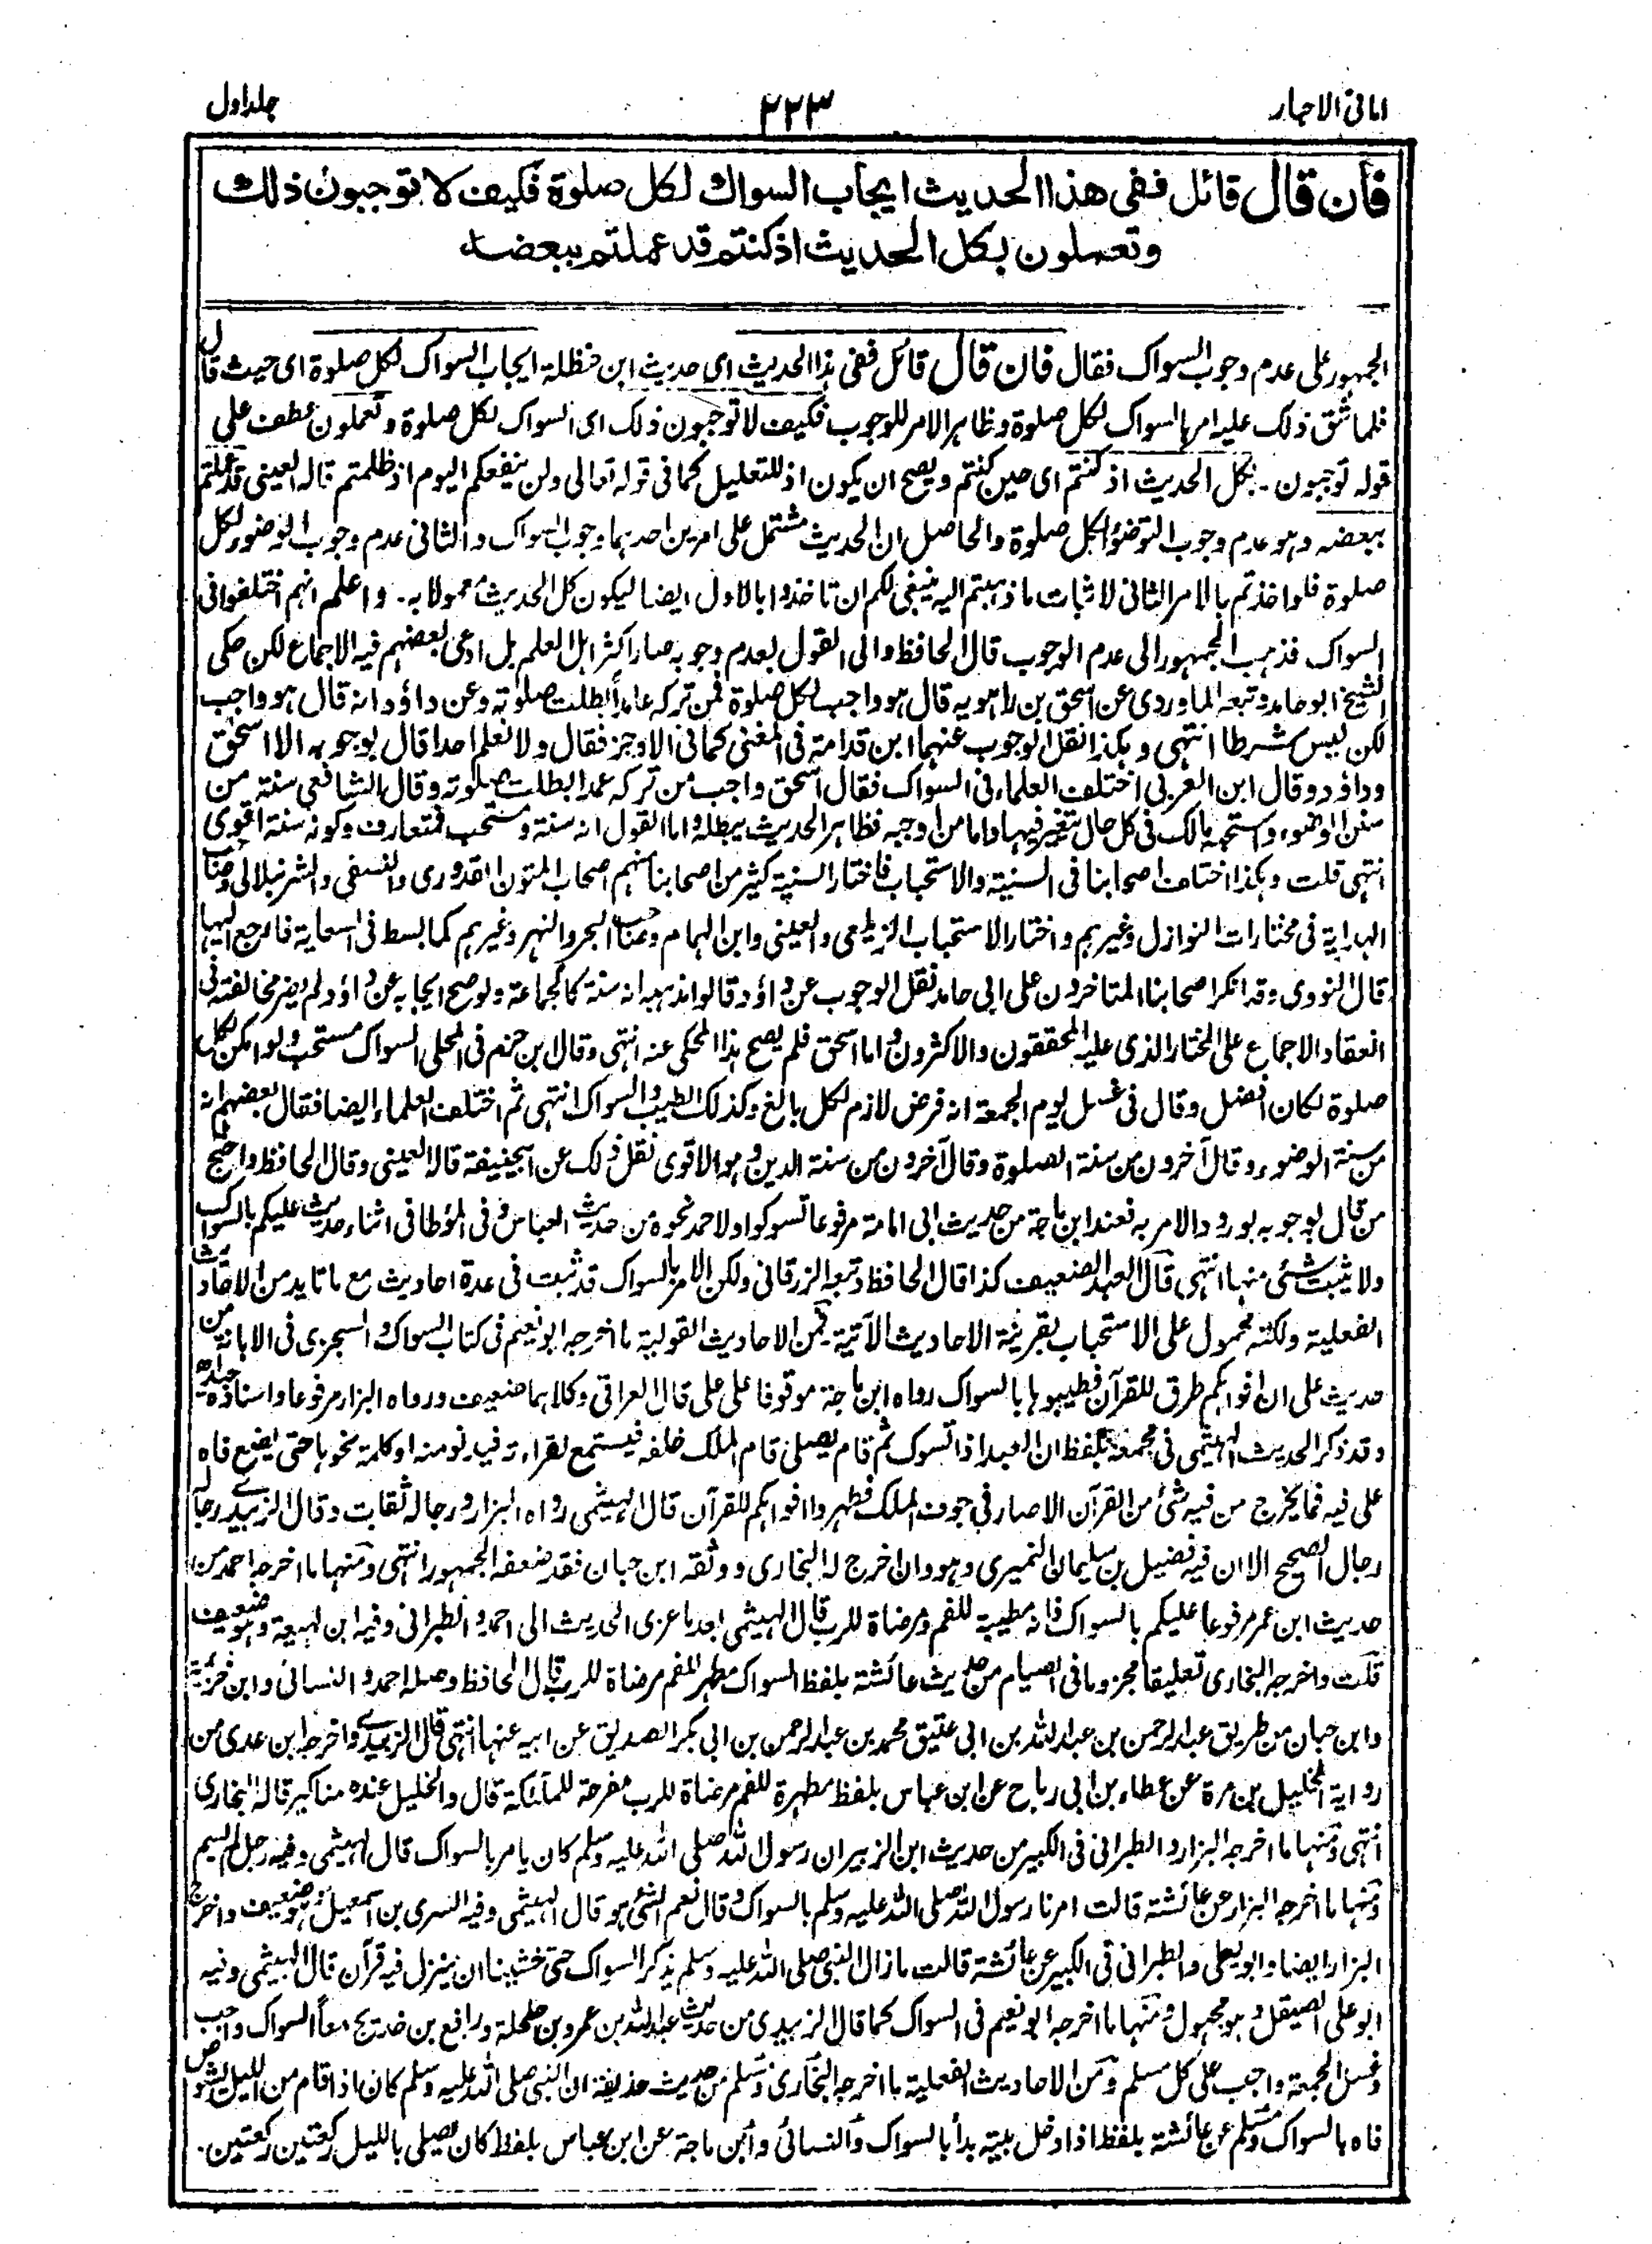 امانی الاحبار ۲۲۳ جلد اول
فأن قال قائل ففی هذا الحدیث ایجاب السواك لكل صلوة فكیف لا توجبون ذلك
وتعملون بكل الحدیث اذ كنتم قد عملتم ببعضه
الجمهور علی عدم وجوب السواک فقال فان قال قائل ففی هذا الحدیث ای حدیث ابن حنظلة ایجاب السواک لکل صلوة ای حیث قال
فلما شق ذلک علیه امر بالسواک لکل صلوة وظاهر الامر للوجوب فکیف لا توجبون ذلک ای السواک لکل صلوة وتعملون عطف علی
قوله توجبون۔ بکل الحدیث اذ کنتم ای حین کنتم ویصح ان یکون اذ للتعلیل کما فی قوله تعالی ولن ینفعکم الیوم اذ ظلمتم قاله العینی قد عملتم
ببعضه وهو عدم وجوب التوضؤ لکل صلوة والحاصل ان الحدیث مشتمل علی امرین احدهما وجوب السواک والثانی عدم وجوب الوضوء لکل
صلوة فلو اخذتم بالامر الثانی لاثبات ما ذهبتم الیه ینبغی لکم ان تاخذوا بالاول ایضا لیکون کل الحدیث معمولا به۔ واعلم انهم اختلفوا فی
السواک فذهب الجمهور الی عدم الوجوب قال الحافظ والی القول بعدم وجوبه صار اکثر اهل العلم بل ادعی بعضهم فیه الاجماع لکن حکی
الشیخ ابو حامد وتبعه الماوردی عن اسحق بن راهویه قال هو واجب لکل صلوة فمن ترکه عامدا بطلت صلوته وعن داؤد انه قال هو واجب
لکن لیس شرطا انتهی وهکذا نقل الوجوب عنهما ابن قدامة فی المغنی کما فی الاوجز فقال ولا نعلم احدا قال بوجوبه الا اسحق
وداؤد وقال ابن العربی اختلف العلماء فی السواک فقال اسحق واجب من ترکه عمدا بطلت صلوته وقال الشافعی سنة من
سنن الوضوء واستحبه مالک فی کل حال تتغیر فیها واما من اوجبه فظاهر الحدیث یبطله واما القول انه سنة ومستحب فمتعارف وکونه سنة اقوی
انتهی قلت وهکذا اختلف اصحابنا فی السنیة والاستحباب فاختار السنیة کثیر من اصحابنا منهم اصحاب المتون القدوری والنسفی والشرنبلالی وصاحب
الهدایة فی مختارات النوازل وغیرهم واختار الاستحباب الزیلعی والعینی وابن الهمام وصاحب البحر والنهر وغیرهم کما بسط فی السعایة فارجع الیها
قال النووی وقد انکر اصحابنا المتاخرون علی ابی حامد نقل الوجوب عن داؤد وقالوا مذهبه انه سنة کالجماعة ولو صح ایجابه عن داؤد لم یضر مخالفته فی
انعقاد الاجماع علی المختار الذی علیه المحققون والاکثرون واما اسحق فلم یصح هذا المحکی عنه انتهی وقال ابن حزم فی المحلی السواک مستحب ولو امکن لکل
صلوة لکان افضل وقال فی غسل یوم الجمعة انه فرض لازم لکل بالغ وکذلک الطیب والسواک انتهی ثم اختلف العلماء ایضا فقال بعضهم انه
من سنة الوضوء وقال آخرون من سنة الصلوة وقال آخرون من سنة الدین وهو الاقوی نقل ذلک عن ابیحنیفة قاله العینی وقال الحافظ واحتج
من قال بوجوبه بورود الامر به فعند ابن ماجة من حدیث ابی امامة مرفوعا تسوکوا ولاحمد نحوه من حدیث العباس وفی المؤطا فی اثناء حدیث علیکم بالسواک
ولا یثبت شئی منها انتهی قال العبد الضعیف کذا قال الحافظ وتبعه الزرقانی ولکن الامر بالسواک قد ثبت فی عدة احادیث مع ما تاید من الاحادیث
الفعلیة ولکنه محمول علی الاستحباب بقرینة الاحادیث الآتیة فمن الاحادیث القولیة ما اخرجه ابو نعیم فی کتاب السواک والسجزی فی الابانة من
حدیث علی ان افواهکم طرق للقرآن فطیبوها بالسواک رواه ابن ماجة موقوفا علی علی قال العراقی وکلاهما ضعیف ورواه البزار مرفوعا واسناده جید اه
وقد ذکر الحدیث الهیثمی فی مجمعه بلفظ ان العبد اذا تسوک ثم قام یصلی قام الملک خلفه فیستمع لقراءته فیدنو منه او کلمة نحوها حتی یضع فاه
علی فیه فما یخرج من فیه شئ من القرآن الا صار فی جوف الملک فطهروا افواهکم للقرآن قال الهیثمی رواه البزار ورجاله ثقات وقال الزبیدی رجاله
رجال الصحیح الا ان فیه فضیل بن سلیمان النمیری وهو وان اخرج له البخاری ووثقه ابن حبان فقد ضعفه الجمهور انتهی ومنها ما اخرجه احمد من
حدیث ابن عمر مرفوعا علیکم بالسواک فانه مطیبة للفم ومرضاة للرب قال الهیثمی بعد ما عزی الحدیث الی احمد والطبرانی وفیه ابن لهیعة وهو ضعیف
قلت واخرجه البخاری تعلیقا مجزوما فی الصیام من حدیث عائشة بلفظ السواک مطهر للفم مرضاة للرب قال الحافظ وصله احمد والنسائی وابن خزیمة
وابن حبان من طریق عبد الرحمن بن عبد الله بن ابی عتیق محمد بن عبد الرحمن بن ابی بکر الصدیق عن ابیه عنها انتهی قال الزبیدی واخرجه ابن عدی من
روایة الخلیل بن مرة عن عطاء بن ابی رباح عن ابن عباس بلفظ مطهرة للفم مرضاة للرب مفرحة للملئکة قال والخلیل عنده مناکیر قاله البخاری
انتهی ومنها ما اخرجه البزار والطبرانی فی الکبیر من حدیث ابن الزبیر ان رسول الله صلی الله علیه وسلم کان یامر بالسواک قال الهیثمی وفیه رجل لم یسم
ومنها ما اخرجه البزار عن عائشة قالت امرنا رسول الله صلی الله علیه وسلم بالسواک وقال نعم الشئی هو قال الهیثمی وفیه السری بن اسمعیل وهو ضعیف واخرج
البزار ایضا وابو یعلی والطبرانی فی الکبیر عن عائشة قالت ما زال النبی صلی الله علیه وسلم یذکر السواک حتی خشینا ان ینزل فیه قرآن قال الهیثمی وفیه
ابو علی الصیقل وهو مجهول ومنها ما اخرجه ابو نعیم فی السواک کما قال الزبیدی من حدیث عبد الله بن عمرو بن حلحلة ورافع بن خدیج معا السواک واجب
وغسل الجمعة واجب علی کل مسلم ومن الاحادیث الفعلیة ما اخرجه البخاری ومسلم من حدیث حذیفة ان النبی صلی الله علیه وسلم کان اذا قام من اللیل یشوص
فاه بالسواک ومسلم عن عائشة بلفظ اذا دخل بیته بدأ بالسواک والنسائی وابن ماجة عن ابن عباس بلفظ کان یصلی باللیل رکعتین رکعتین۔